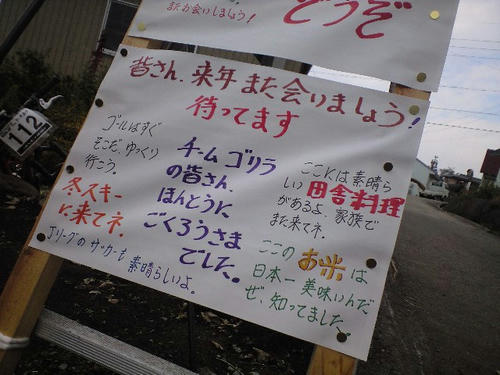 またお会いしましょう!
どうぞ
皆さん、来年また会いましょう!
待ってます
ゴールはすぐ
そこだ、ゆっくり
行こう。
チームゴリラ
の皆さん、
ほんとうに
ごくろうさま
でした。
ここには素晴ら
しい田舎料理
があるよ、家族で
また来てネ。
冬スキー
に来てネ。
Jリーグのサッカーも
素晴らしいよ。
ここのお米は
日本一美味いんだ
ぜ、知ってました
112